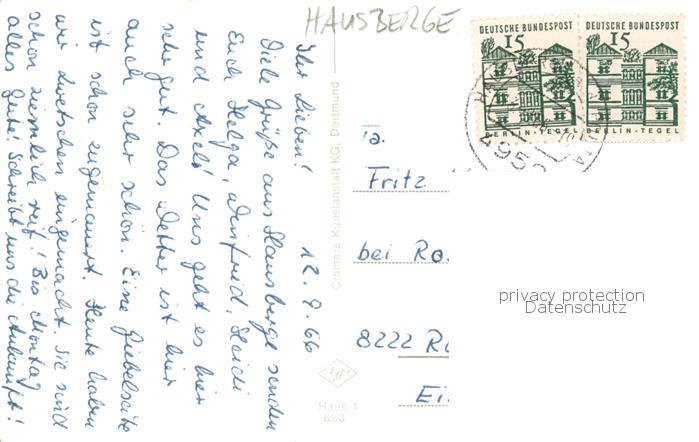 HAUSBERGE
12.9.66
Ihr Lieben!
Viele Grüße aus Hausberge senden
Euch Helga, Winfried, Heidi
und Axel! Uns geht es hier
sehr gut. Das Wetter ist hier
auch sehr schön. Eine Giebelseite
ist schon zugemauert. Heute haben
wir Zwetschen eingemacht. Sie sind
schon ziemlich reif! Bis Montag
alles Gute! Schreibt uns die Ankunft!
Cramers Kunstanstalt KG, Dortmund
Haub 1
63/3
DEUTSCHE BUNDESPOST
15
BERLIN-TEGEL
DEUTSCHE BUNDESPOST
15
BERLIN-TEGEL
495
Fa.
Fritz
bei Ro.
8222 Ru
Ei.
privacy protection
Datenschutz